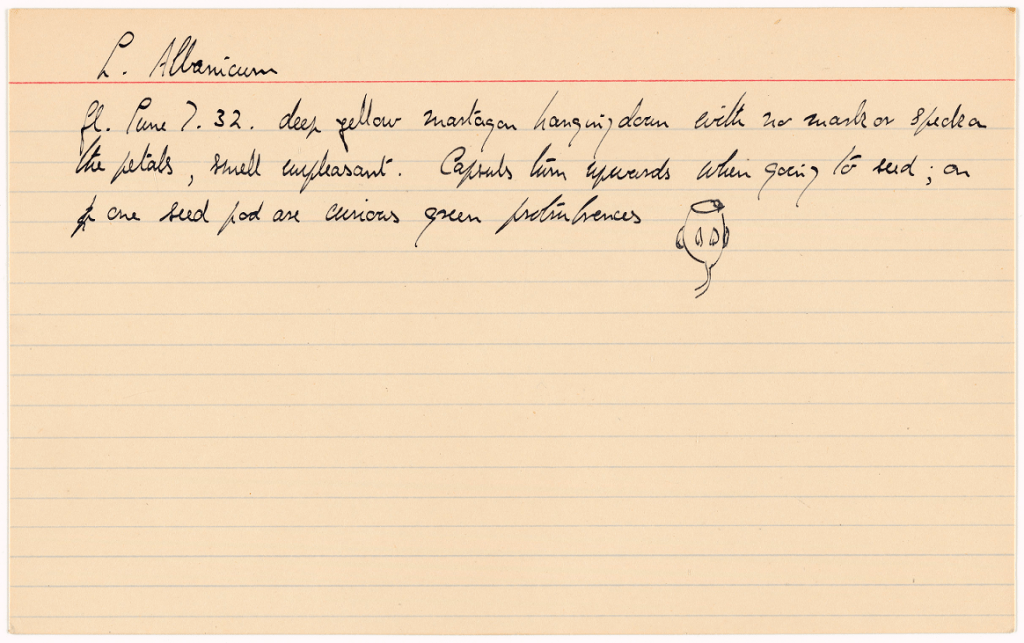 L. Albanicum
fl. June 7. 32. deep yellow martagon hanging down with no mark or speck on
the petals, smell unpleasant. Capsuls turn upwards when going to seed; on
one seed pod are curious green protubrences